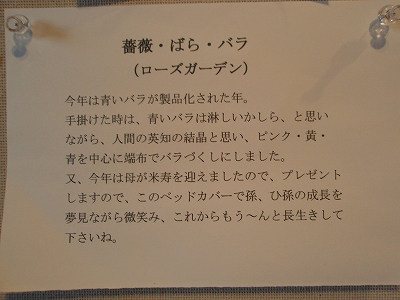 薔薇・ばら・バラ
(ローズガーデン)
今年は青いバラが製品化された年。
手掛けた時は、青いバラは淋しいかしら、と思い
ながら、人間の英知の結晶と思い、ピンク・黄・
青を中心に端布でバラづくしにしました。
又、今年は母が米寿を迎えましたので、プレゼント
しますので、このベッドカバーで孫、ひ孫の成長を
夢見ながら微笑み、これからもう〜んと長生きして
下さいね。